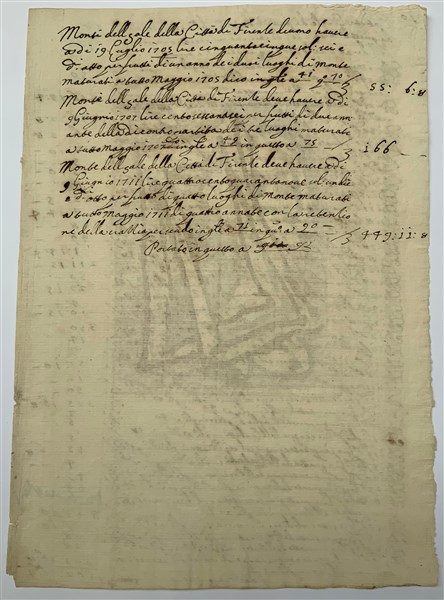 Monti del sale della Città di Firenze devono havere
a dì 19 Luglio 1705 lire cinquanta cinque sol: sei e
d: otto per frutti di un anno de i duoi luoghi di Monte
maturati a tutto Maggio 1705 dico in gle a 41 70 55: 6: 8
Monte del sale della Città di Firenze deve havere a dì
9 Giugno 1707 lire cento sessanta sei per frutti di due an
nate della di contro partita de i tre luoghi maturati
a tutto Maggio in gle a 42 in questo a 75 166
Monte del sale della Città di Firenze deve havere a dì
9 Giugnio 1711 lire quattrocento quarantanove sol: undici
e d: otto per frutti di quattro luoghi di Monte maturati
a tutto Maggio 1711 di quattro annate con la retenzio
ne della per scudo in gle a a 20 449: 11: 8
Portato in questo a 92